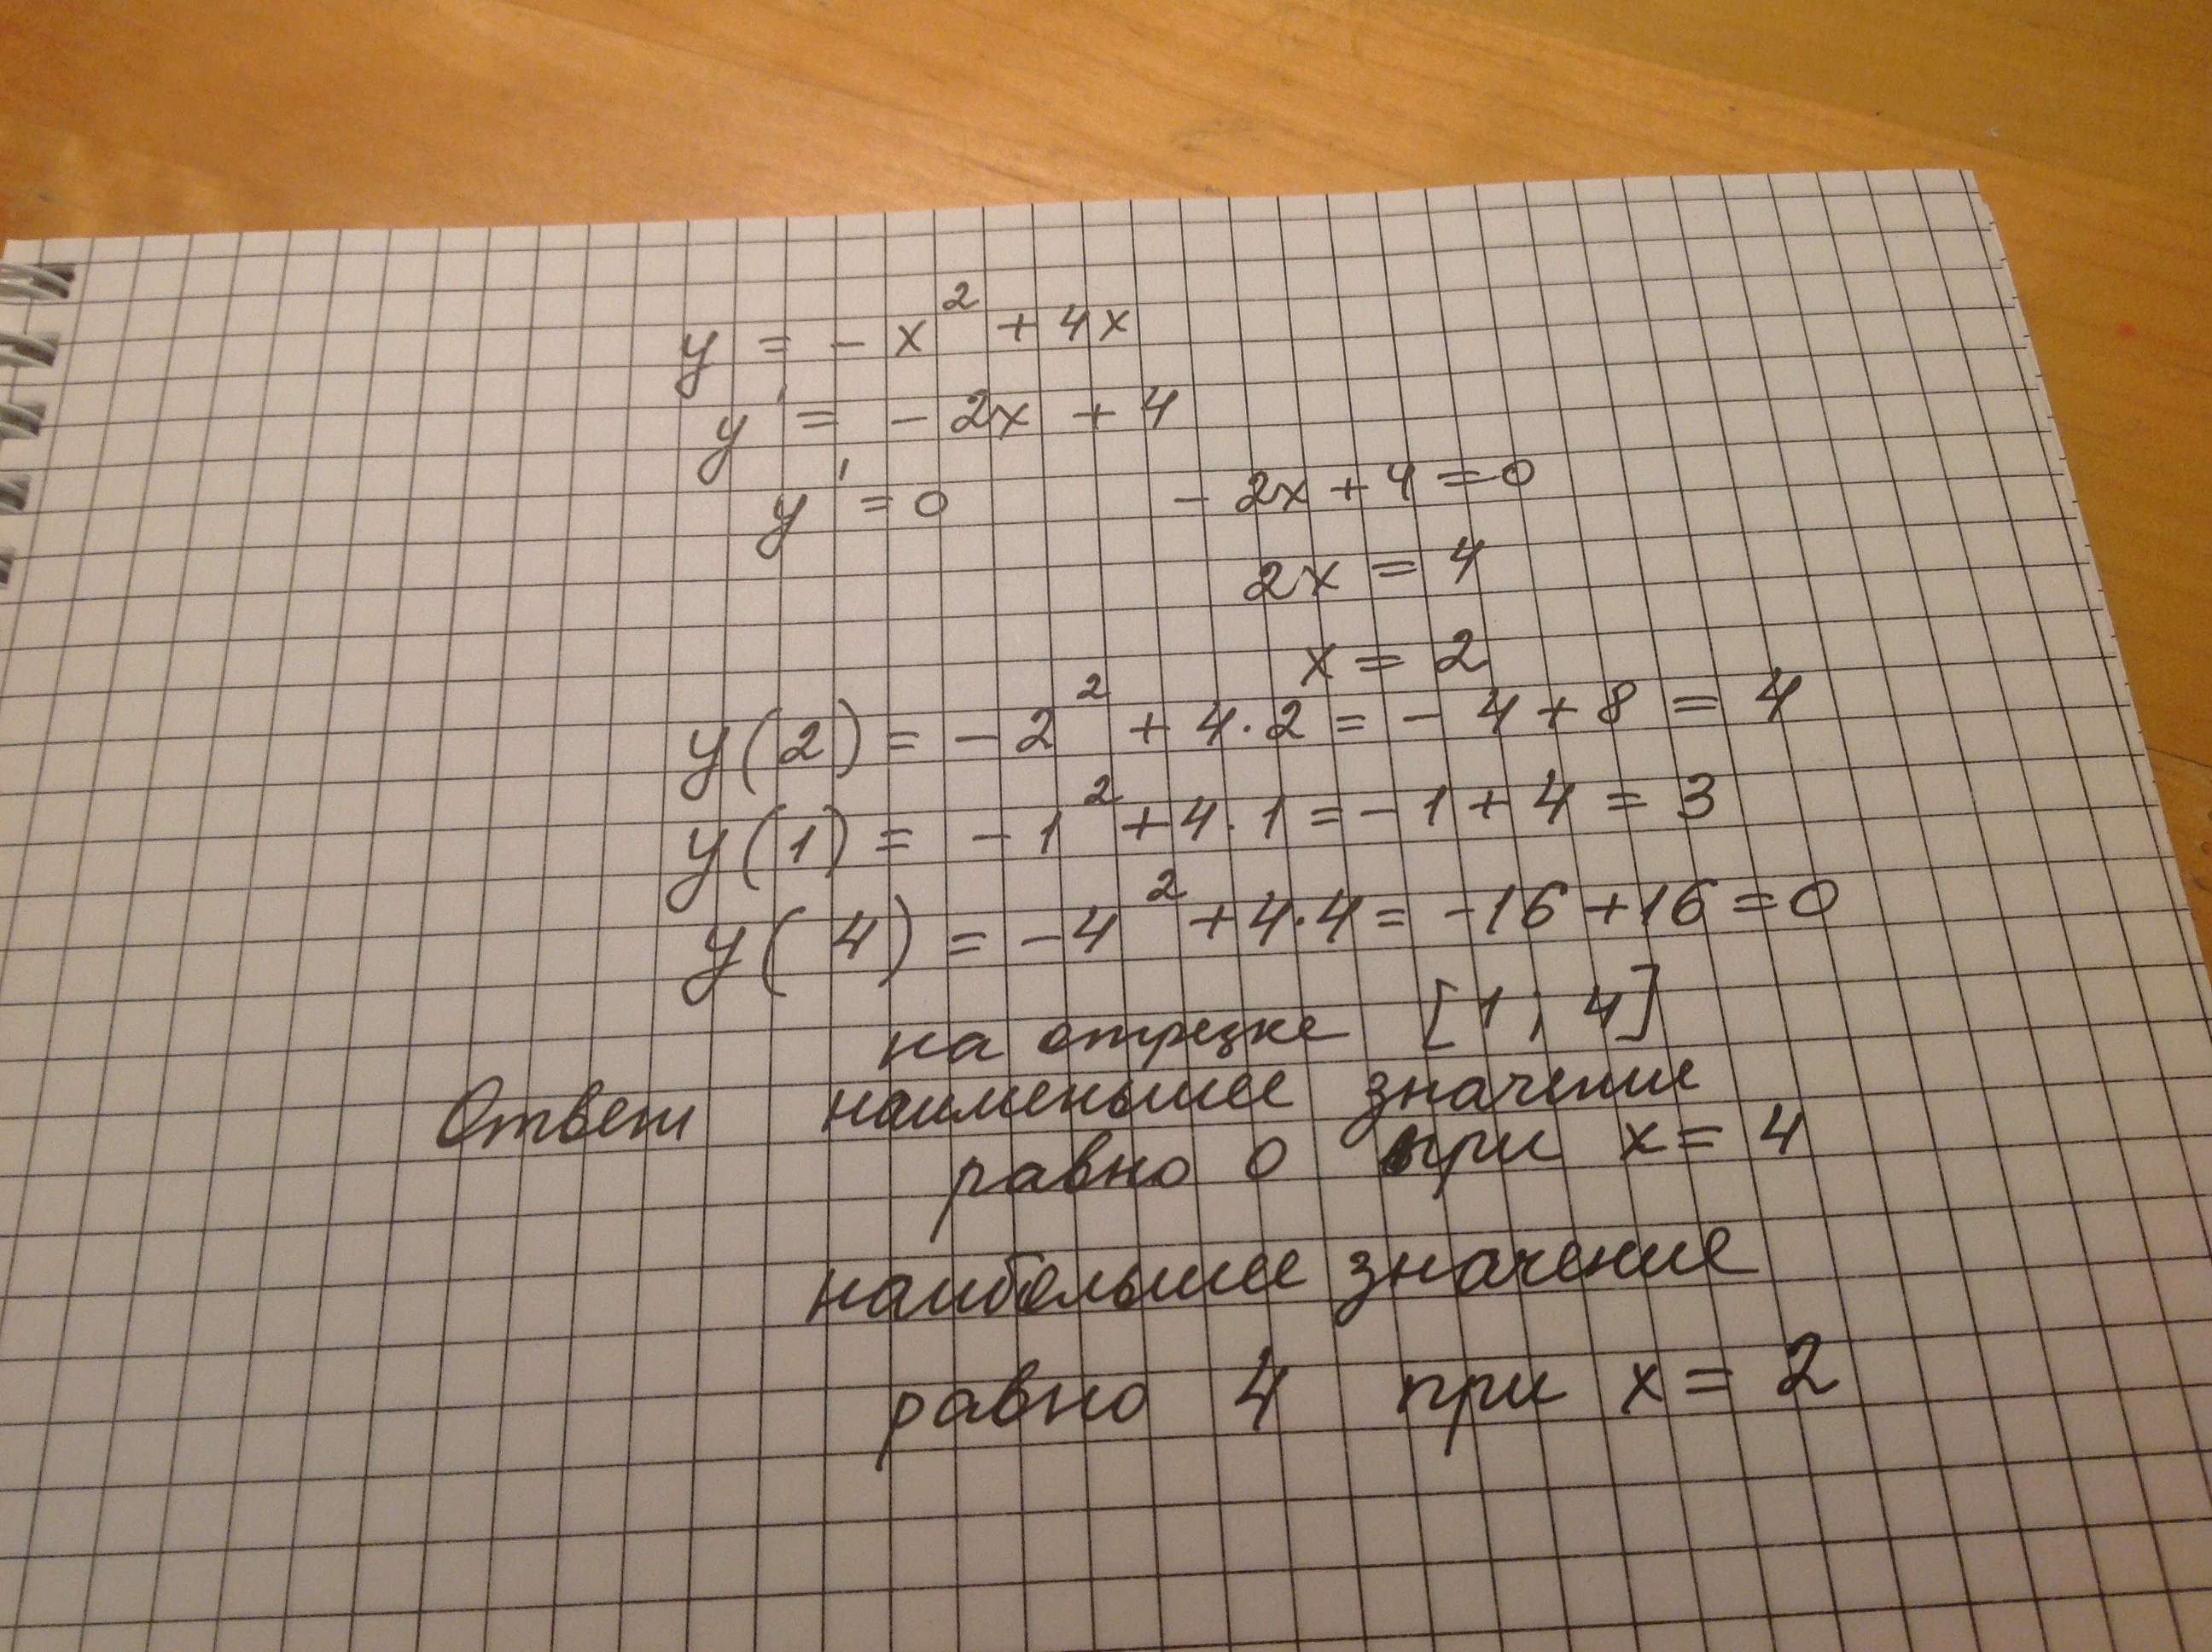 y = - x² + 4x
y' = - 2x + 4
y' = 0 - 2x + 4 = 0
2x = 4
x = 2
y(2) = - 2² + 4·2 = - 4 + 8 = 4
y(1) = - 1² + 4·1 = - 1 + 4 = 3
y(4) = - 4² + 4·4 = - 16 + 16 = 0
на отрезке [1; 4]
Ответ наименьшее значение
равно 0 при x = 4
наибольшее значение
равно 4 при x = 2